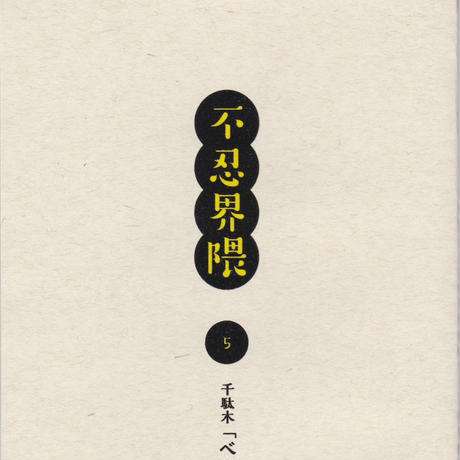 不忍界隈
5
千駄木「べ